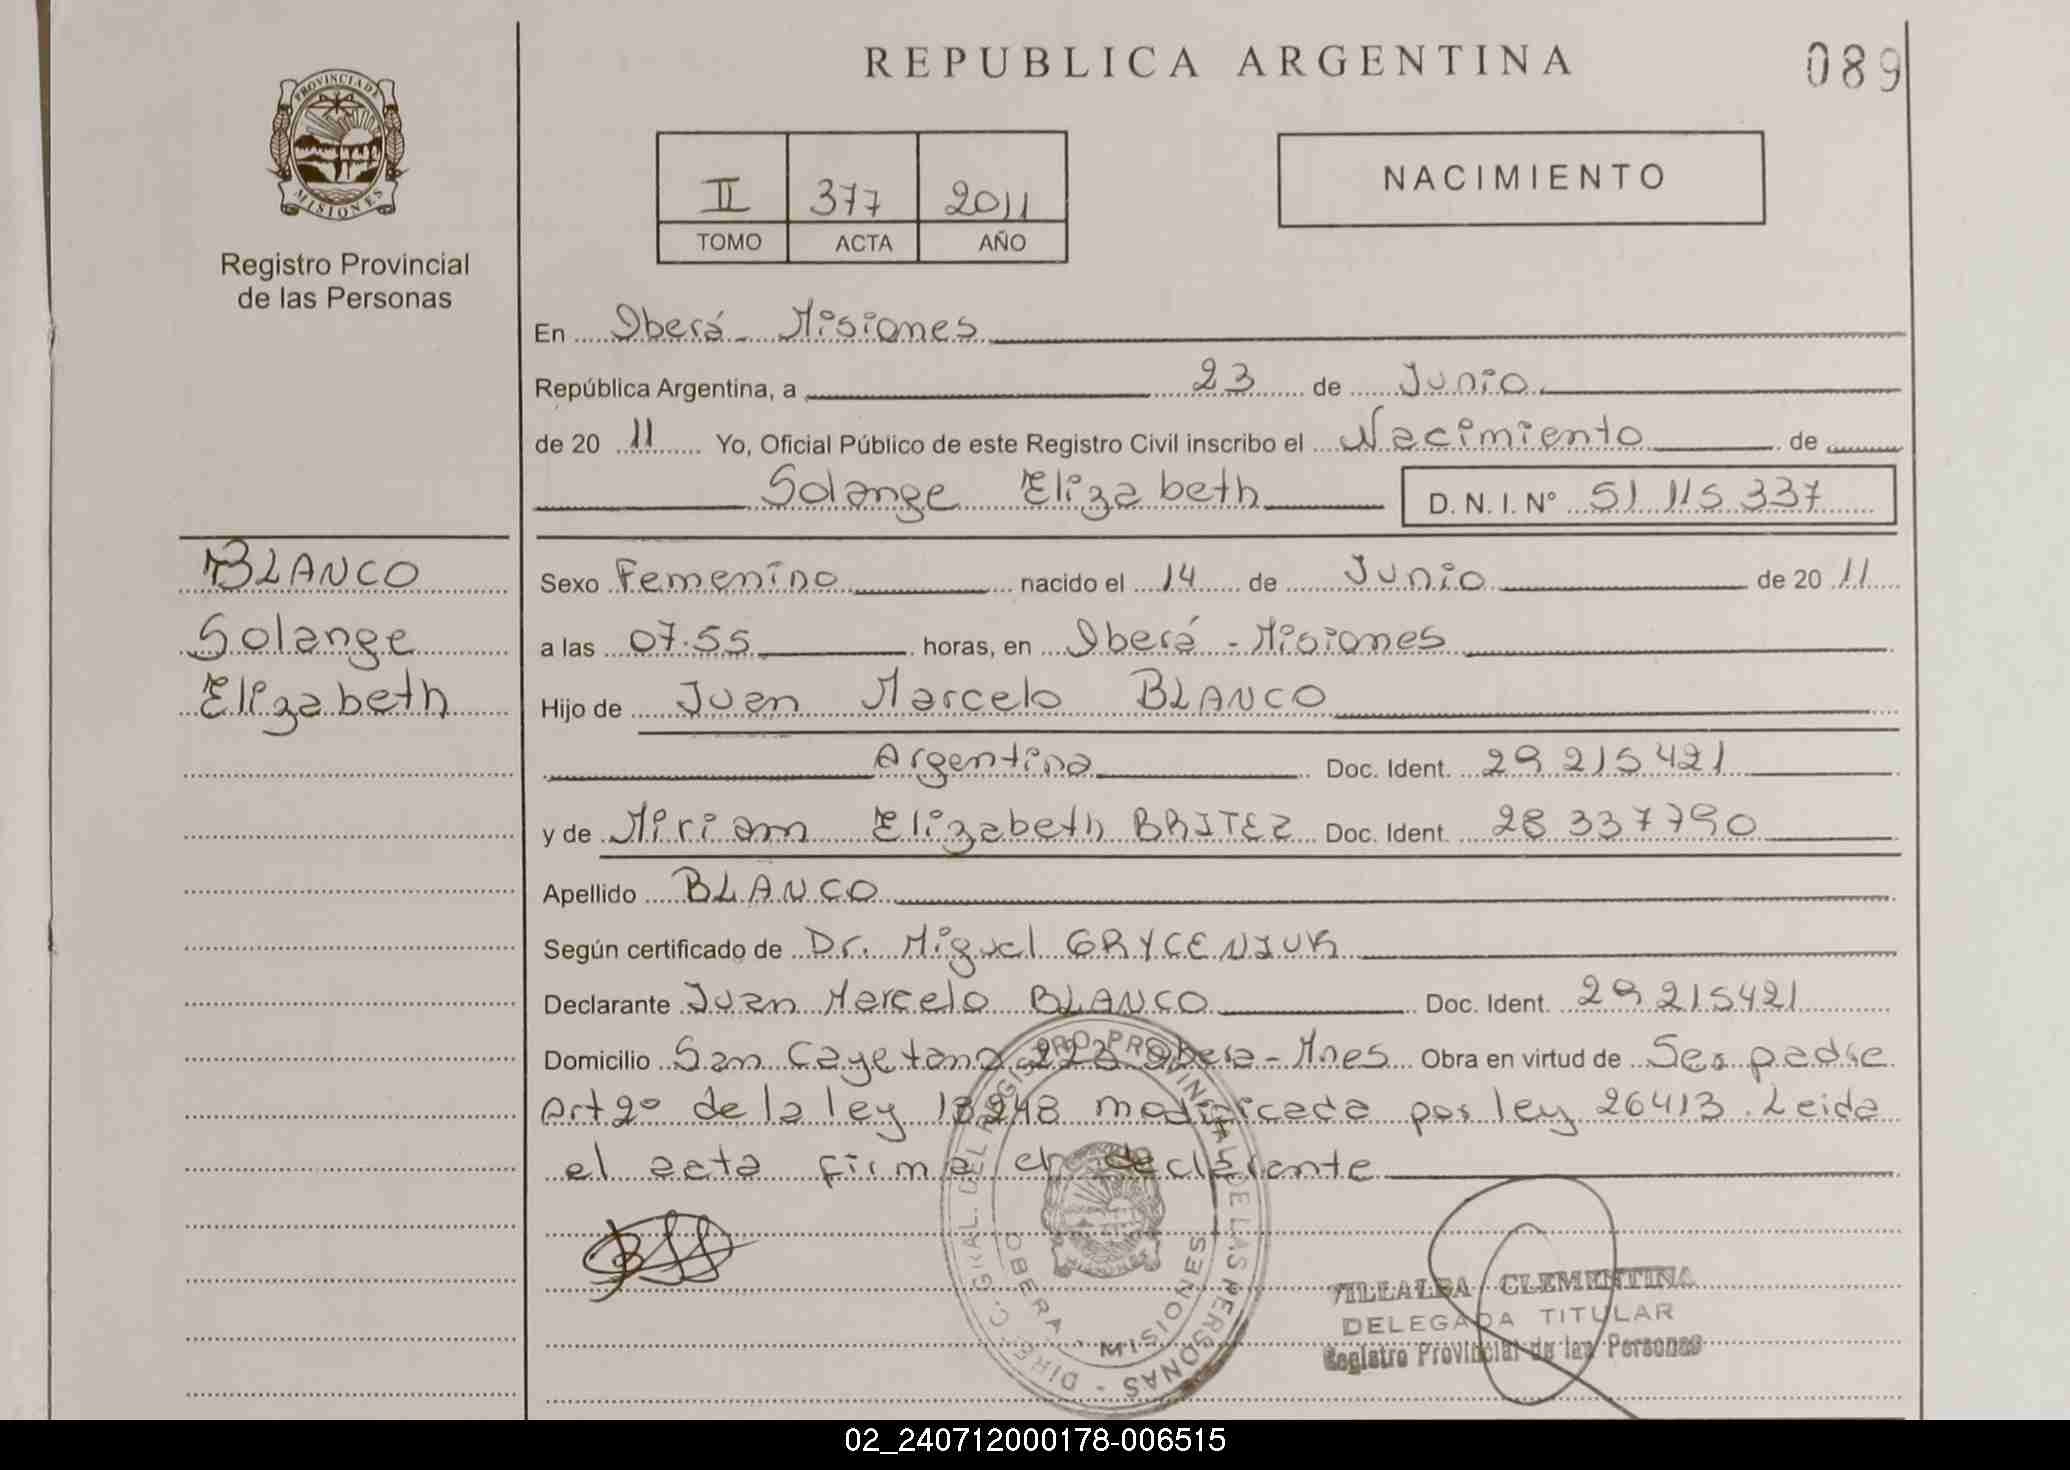 REPUBLICA ARGENTINA
089
PROVINCIA DE MISIONES
Registro Provincial
de las Personas
II 377 2011
TOMO ACTA AÑO
NACIMIENTO
En Oberá - Misiones
República Argentina, a 23 de Junio
de 20 11 Yo, Oficial Público de este Registro Civil inscribo el Nacimiento de
Solange Elizabeth D. N. I. Nº 51 115 337
BLANCO
Solange
Elizabeth
Sexo Femenino nacido el 14 de Junio de 20 11
a las 07:55 horas, en Oberá - Misiones
Hijo de Juan Marcelo BLANCO
Argentina Doc. Ident. 29 215 421
y de Miriam Elizabeth BRITEZ Doc. Ident. 28 337 790
Apellido BLANCO
Según certificado de Dr. Miguel GRYCENIUK
Declarante Juan Marcelo BLANCO Doc. Ident. 29 215421
Domicilio San Cayetano Obera - Mnes Obra en virtud de Ser padre
Art 2º de la ley 18248 modificada por ley 26413. Leida
el acta firma el declarante
DIREC. GRAL. DEL REGISTRO PROVINCIAL DE LAS PERSONAS
OBERA - MISIONES
VILLALBA CLEMENTINA
DELEGADA TITULAR
Registro Provincial de las Personas
02_240712000178-006515